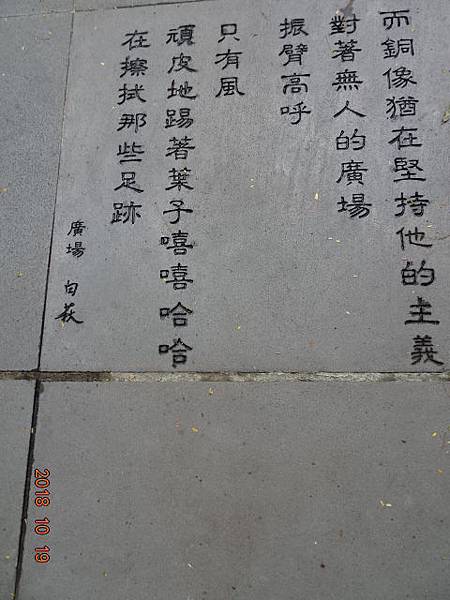 而銅像猶在堅持他的主義
對著無人的廣場
振臂高呼
只有風
頑皮地踢著葉子嘻嘻哈哈
在擦拭那些足跡
廣場 白萩
2018 10 19